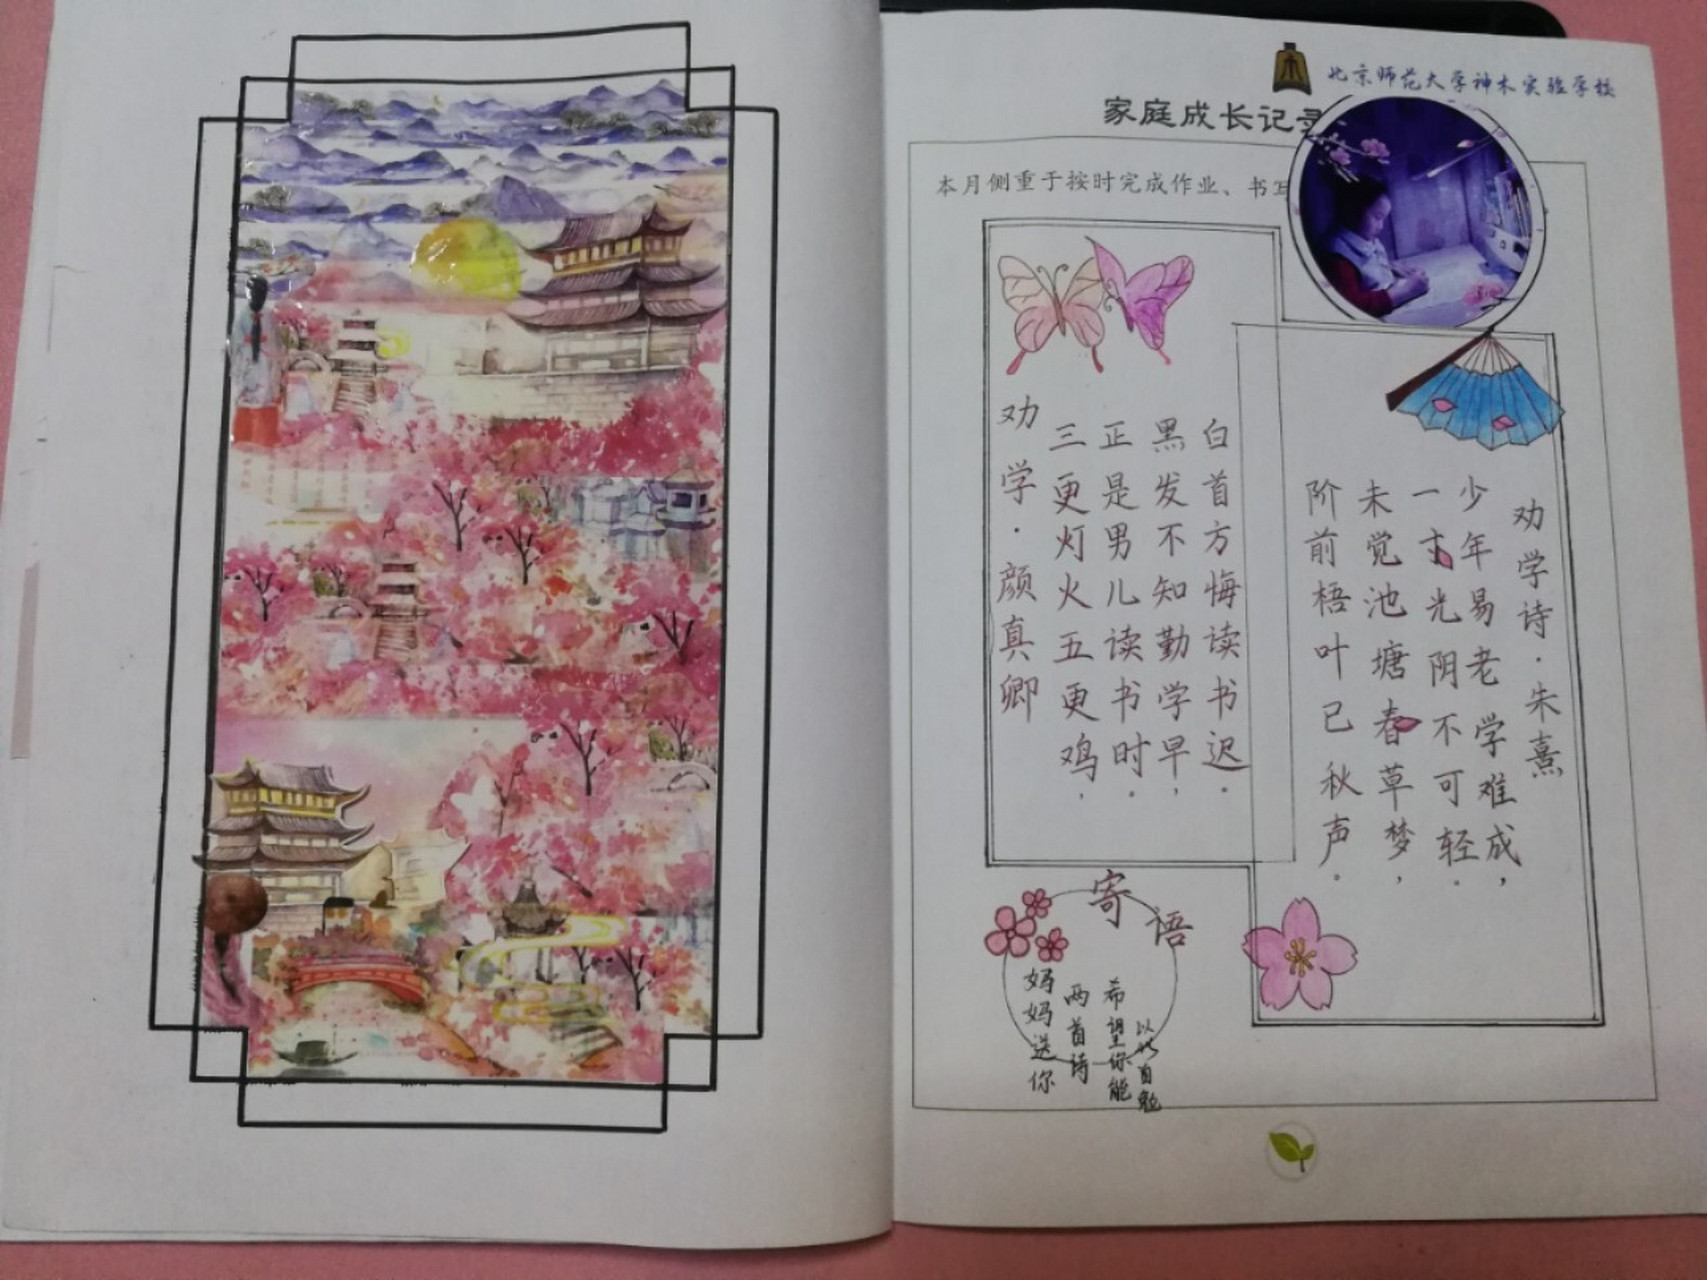 北京师范大学神木实验学校
家庭成长记录
本月侧重于按时完成作业、书写
劝学·颜真卿
三更灯火五更鸡，
正是男儿读书时。
黑发不知勤学早，
白首方悔读书迟。
劝学诗·朱熹
少年易老学难成，
一寸光阴不可轻。
未觉池塘春草梦，
阶前梧叶已秋声。
寄语
妈妈送你
两首诗
希望你能
以此自勉